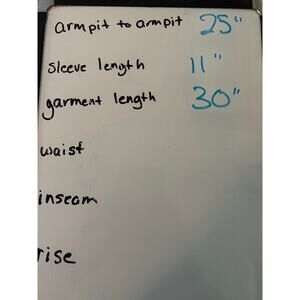 armpit to armpit 25"
sleeve length 11"
garment length 30"
waist
inseam
rise